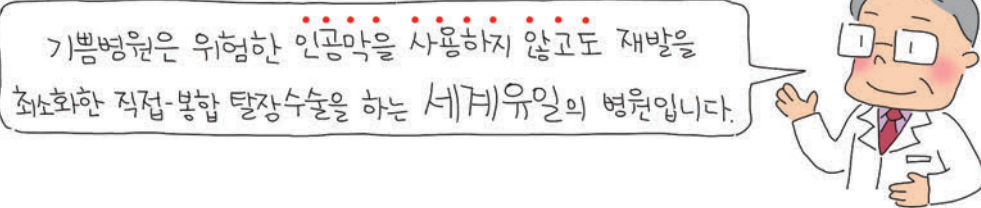 기쁨병원은 위험한 인공막을 사용하지 않고도 재발을
최소화한 직접-봉합 탈장수술을 하는 세계유일의 병원입니다.